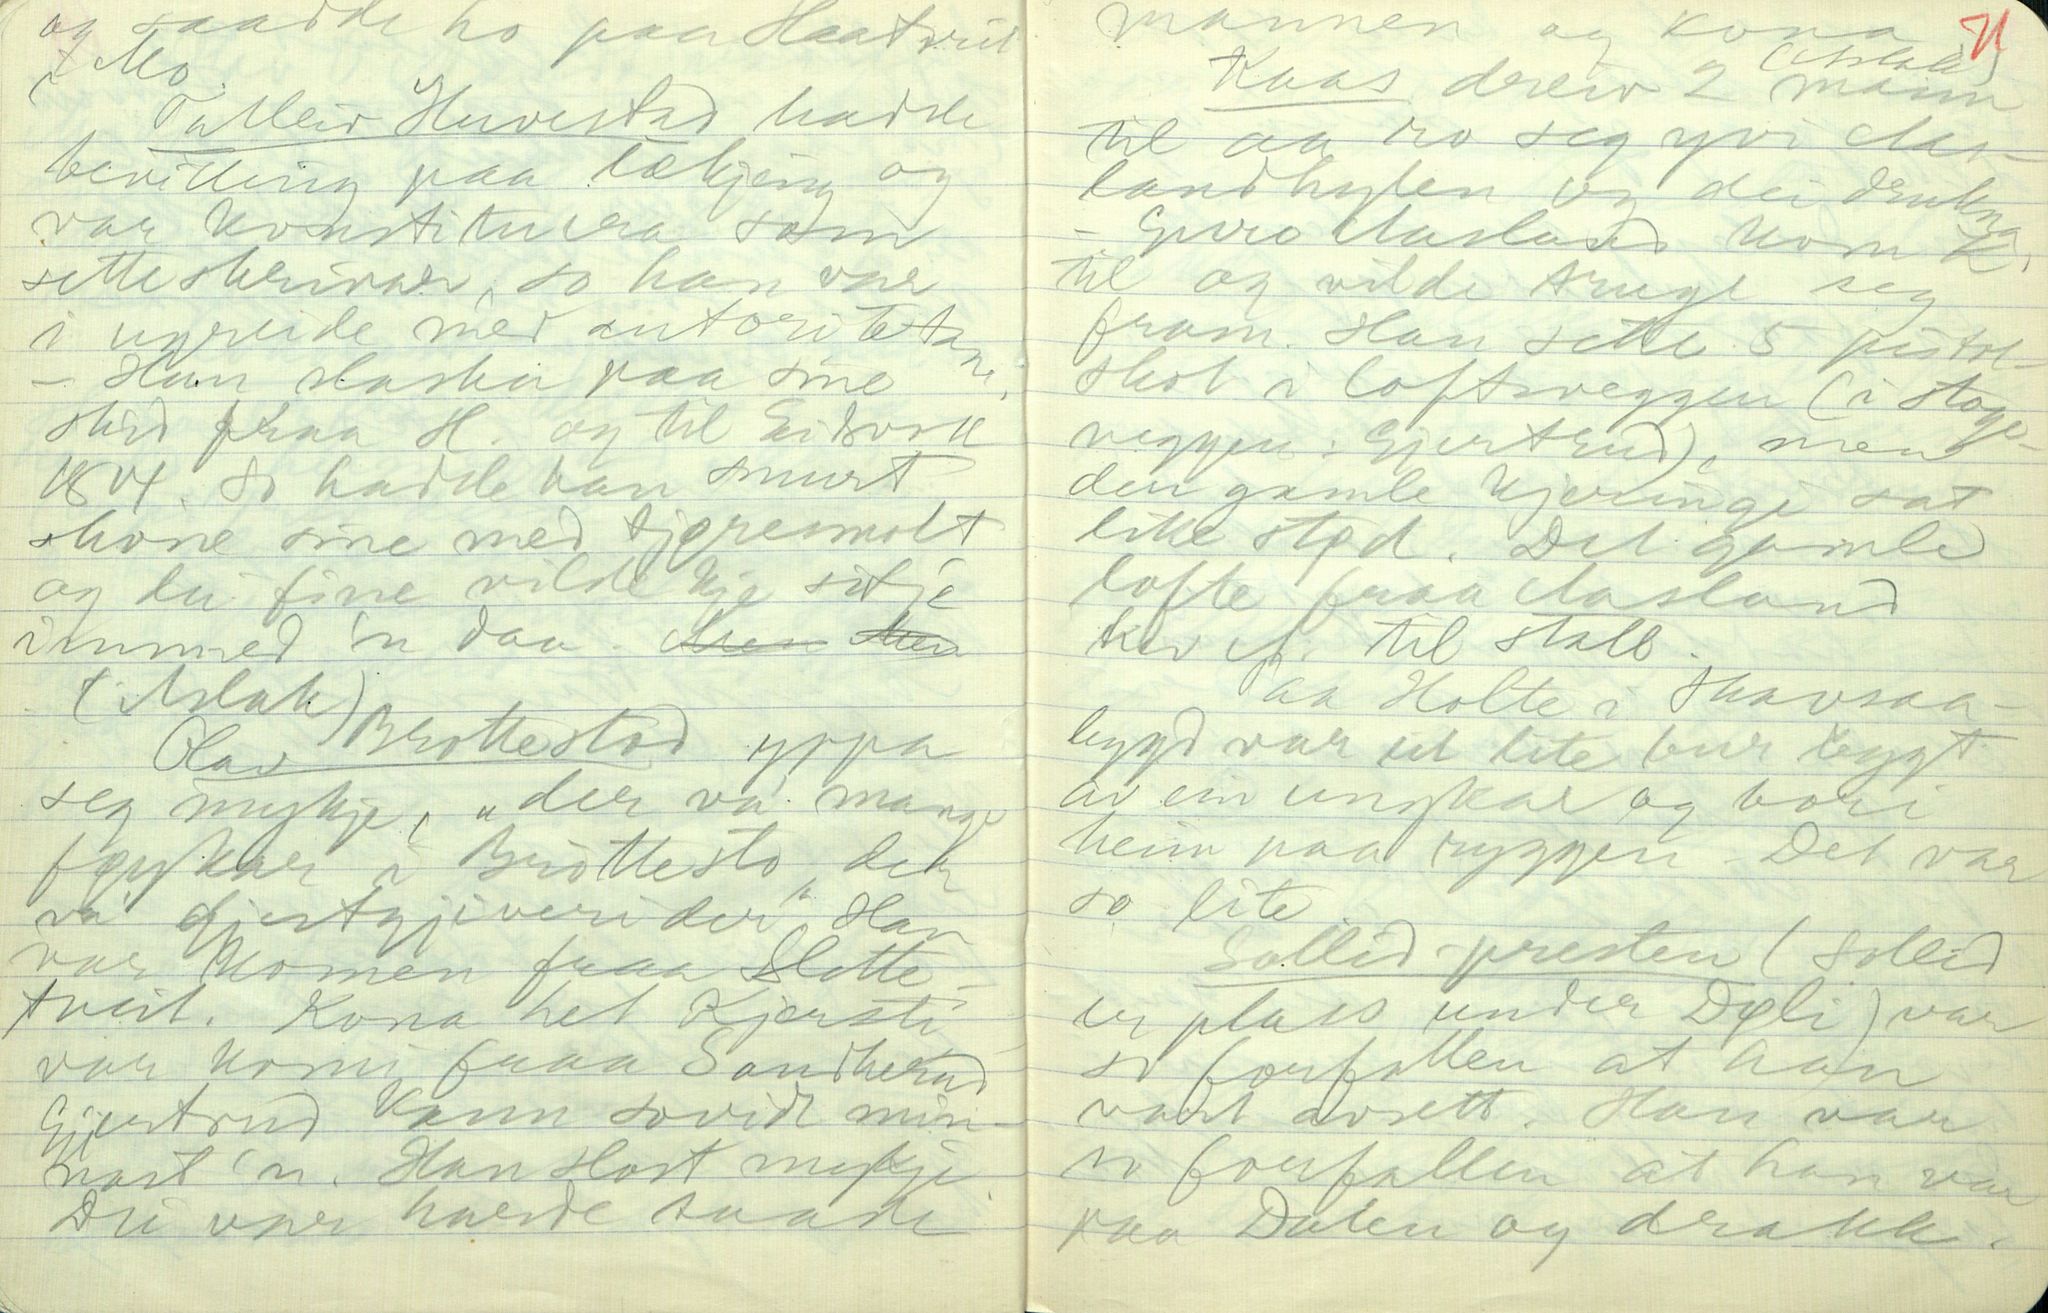 og saadde ho paa Haatveit
i Mo.
Talleiv Huvestad hadde
bevilling paa lækjing og
var konstituera som
setteskrivar, so han var
i ugreide med autoritetane.
- Han slaska paa sine
skid fraa H. og til Eidsvoll
1814. So hadde han smurt
skóine sine med tjøresmolt
og dei fine vilde kje sitje
innmed 'n daa.
(Aslak)
Olav Brottestod yppa
seg mykje, "der va mange
føykar i Brottestó, der
va gjestgjiverider" Han
var komen fraa Slotte-
tveit. Kona het Kjersti
var komi fraa Sandherad
Gjertrud kann sovidt min-
nast 'n. Han slost mykje.
Dei var harde baade
mannen og kona
71
(Aslak)
Kaas dreiv 2 mann
til aa ro seg yvi Aas-
landhylen og dei drukna
- Guro Aasland kom K.
til og vilde truge seg
fram. Han sette 5 pistol-
skot i loftsveggen (i stoge-
veggen: Gjertrud), men
den gamle kjeringi sat
like stød. Det gamle
lofte fraa Aasland
til stall.
aa Holte i Skavsaa-
bygd var eit lite bur bygt
av ein ungkar og bori
heim paa ryggen - Det var
so lite.
Sollid-presten (Sollid
er plass under Døli) var
so forfallen at han
vart avsett. Han var
so forfallen at han var
paa Dalen og drakk.